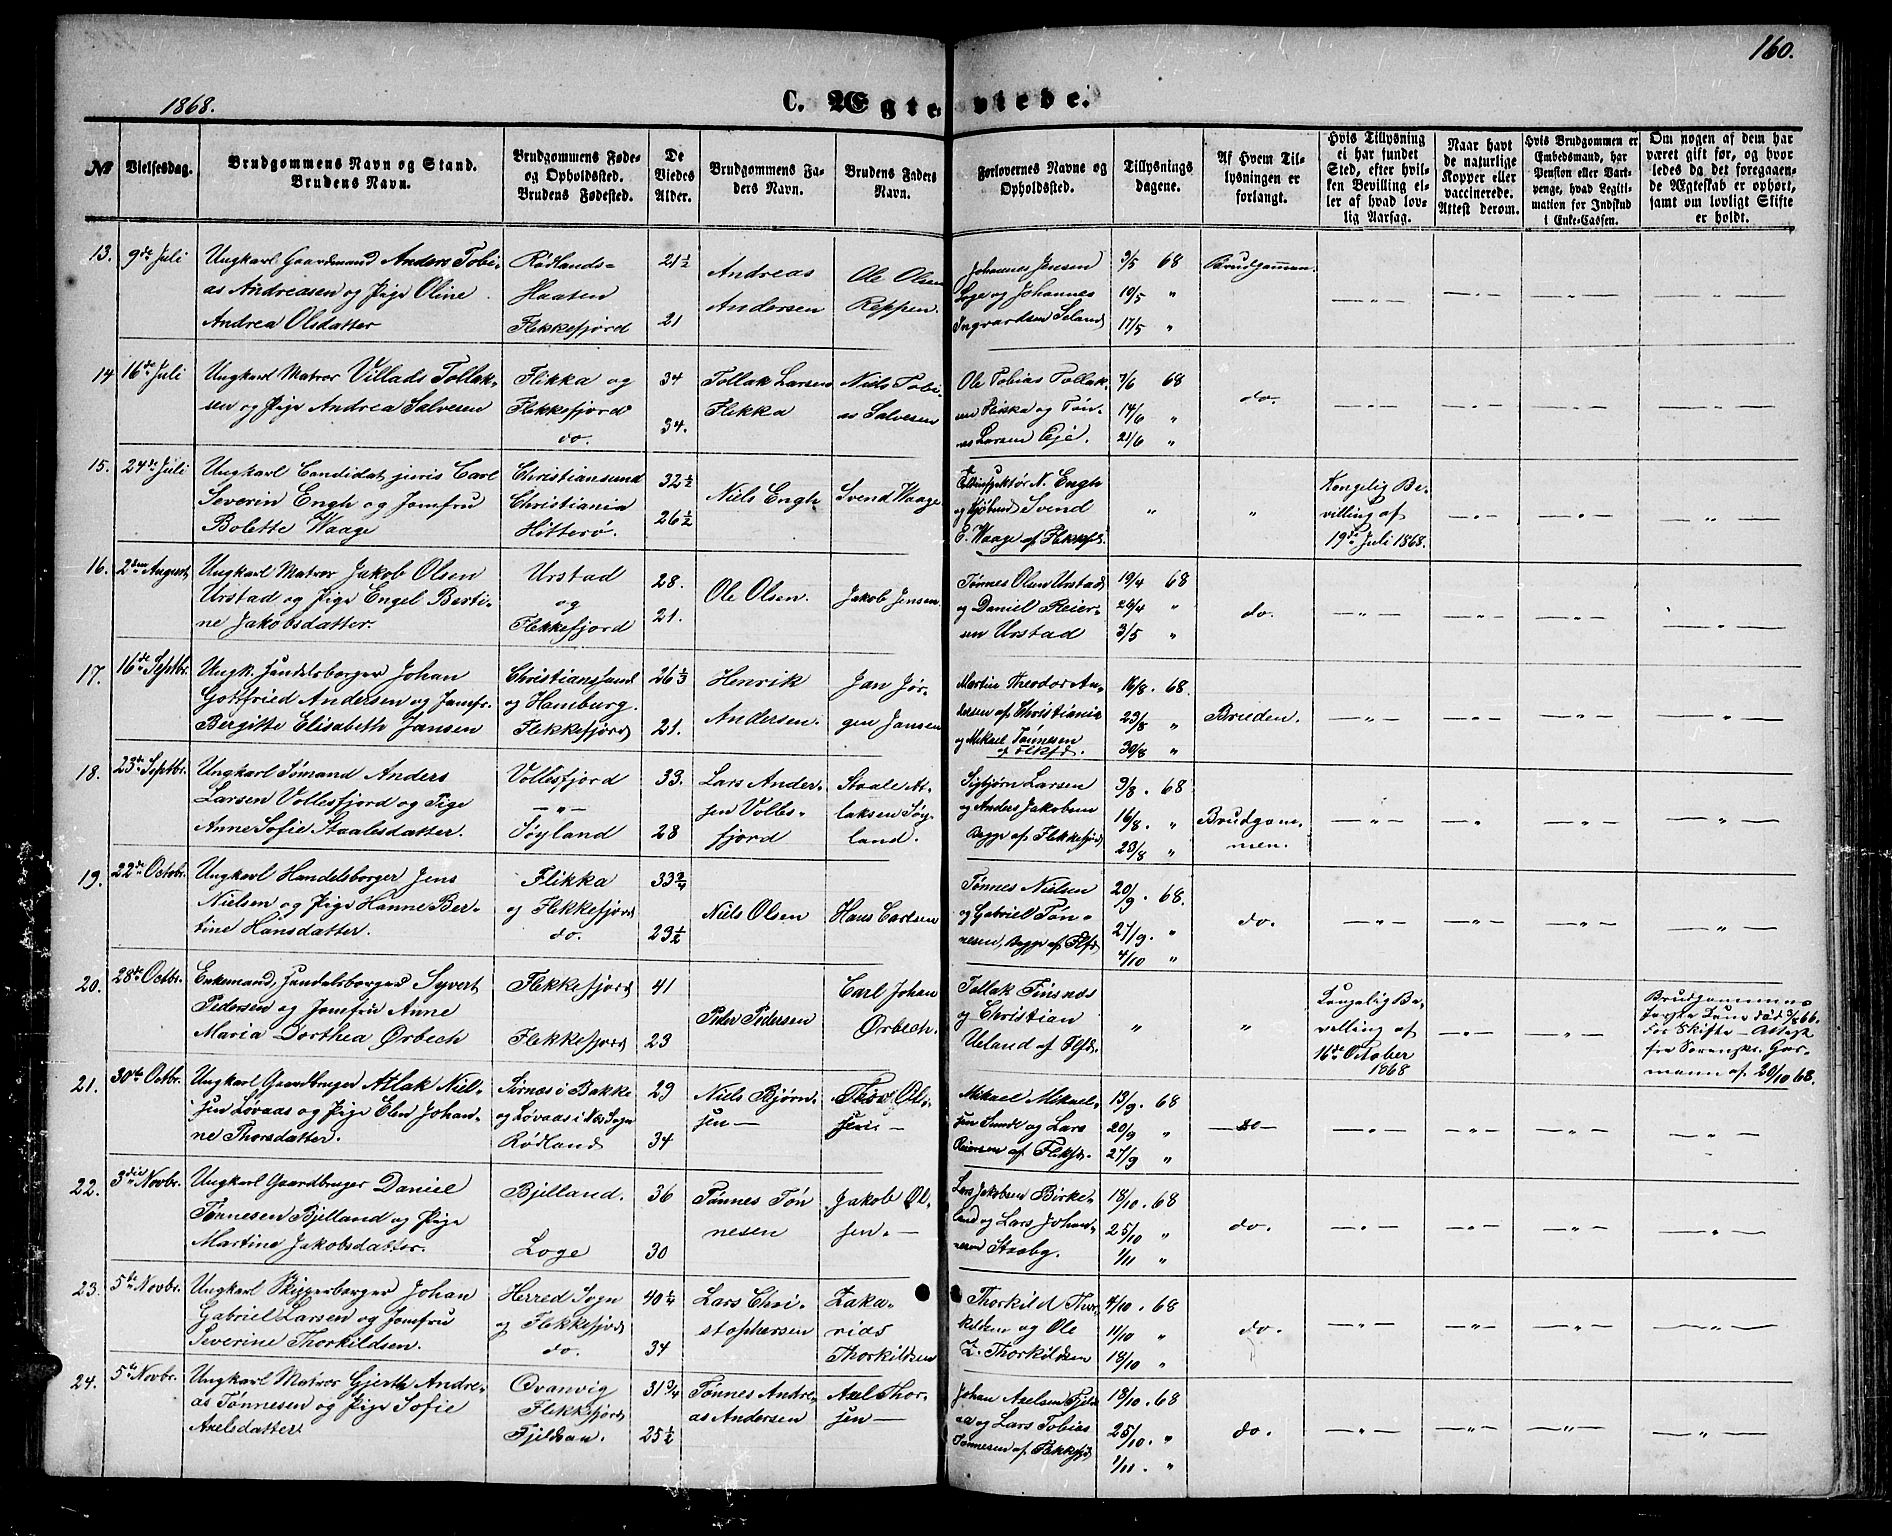 160.
1868.
C. Ægteviede.
№
Vielsesdag.
Brudgommens Navn og Stand.
Brudens Navn.
Brudgommens Føde-
og Opholdssted.
Brudens Fødested.
De
Viedes
Alder.
Brudgommens Fa-
ders Navn.
Brudens Faders
Navn.
Forlovernes Navne og
Opholdssted.
Tillysnings
dagene.
Af Hvem Til-
lysningen er
forlangt.
Hvis Tillysning
ei har fundet
Sted, efter hvil-
ken Bevilling el-
ler af hvad lov-
lig Aarsag.
Naar havt
de naturlige
Kopper eller
vaccinerede.
Attest derom.
Hvis Brudgommen er
Embedsmand, har
Pension eller Vart-
penge, hvad Legiti-
mation for Indskud
i Enke-Cassen.
Om nogen af dem har
været gift før, og hvor
ledes da det foregaaen-
de Ægteskab er ophørt,
samt om lovligt Skifte
er holdt.
13. 9de Juli
Ungkarl Gaardmand Anders Tobi-
as Andreasen og Pige Oline
Andrea Olsdatter
Rødlands-
Haaten
Flekkefjord
21½
21
Andreas
Andersen
Ole Olsen
Reppen.
Johannes Jensen
Loge og Johannes
Ingvardsen Seland
3/5 68
10/5 "
17/5 "
Brudgommen.
14 16de Juli
Ungkarl Matros Villads Tollak-
sen og Pige Andrea Salvesen
Flikka og
Flekkefjord
do.
34
34.
Tollak Larsen
Flikka
Niels Tobi-
as Salvesen
Ole Tobias Tollak-
sen Fliska og Tøn-
nes Larsen Eje.
7/6 68
14/6 "
21/6 "
do.
15. 24de Juli
Ungkarl Candidat juris Carl
Severin Engh og Jomfru
Bolette Waage
Christiansund
Christiania
Hitterø.
32½
26½
Niels Engh
Svend Waage
N. Engh
og Svend
E. Waage af Flekkefd.
"
"
Kongelig Be-
villing af
19de Juli 1868.
16. 2den August
Ungkarl Matros Jakob Olsen
Urstad og Pige Engel Berti-
ne Jakobsdatter.
Urstad
og
Flekkefjord
28.
21.
Ole Olsen.
Jakob Jensen.
Tønnes Olsen Urstad
og Daniel Reier-
sen Urstad
19/4 68
26/4 "
3/5 "
do.
17. 16de Septbr.
Ungk. Handelsborger Johan
Gottfried Andersen og Jomfr.
Bergitte Elisabeth Jansen
Christianssund
og Hamburg.
Flekkefjord
26⅓
21.
Henrik
Andersen.
Jan Jør-
gen Jansen
Martin Theodor An-
dersen af Christiania
og Mikael Tønnesen
af Flkfd.
16/8. 68.
23/8 "
30/8 "
Bruden.
18. 23de Septbr.
Ungkarl Sømand Anders
Larsen Vollesfjord og Pige
Anne Sofie Staalesdatter.
Vollesfjord
— " —
Søyland
33.
28
Lars Ander-
sen Volles-
fjord
Staale At-
laksen Søy-
land.
Sigbjørn Larsen
og Anders Jakobsen
Begge af Flekkefjord
9/8. 68.
16/8. "
23/8 "
Brudgom-
men.
19. 22de Octobr.
Ungkarl Handelsborger Jens
Nielsen og Pige Hanne Ber-
tine Hansdatter.
Flikka
og Flekkefjord
do.
33¾
23½
Niels Olsen
Hans Carlsen
Tønnes Nielsen
og Gabriel Tøn-
nesen, Begge af Flfd.
20/9. 68.
27/9. "
4/10 "
do.
20. 28de Octbr.
Enkemand, Handelsborger Syvert
Pedersen og Jomfru Anne
Maria Dorthea Ørbech
Flekkefjord
Flekkefjord
41
23
Peder Pedersen
Carl Johan
Ørbech.
Tollak Tinsnæs
og Christian
Ueland af Flfd.
"
"
Kongelig Be-
villing af
16de October
1868
Brudgommens
første Kone død 3/8 66.
for Skifte-Attest
fra Sorenskr. Gar-
mann af 20/10 68.
21. 30te Octbr.
Ungkarl Gaardbruger Atlak Niel-
sen Løvaas og Pige Elen Johan-
ne Thorsdatter.
Sirnæs i Bakke
og Løvaas i Næs Sogn
Rødland
29
34
Niels Bjørn-
sen —
Thor Ol-
sen —
Mikael Mikael-
sen Sunde og Lars
Reiersen af Flekfd.
13/9. 68
20/9 "
27/9 "
— do —
22. 3die Novbr.
Ungkarl Gaardbruger Daniel
Tønnesen Bjelland og Pige
Martine Jakobsdatter.
Bjelland.
Loge
36
30
Tønnes Tøn
nesen
Jakob Ol-
sen. —
Lars Jakobsen Birke-
land og Lars Johan-
nesen Stroby.
18/10. 68
25/10 "
1/11 "
do.
23. 5te Novbr.
Ungkarl Skipperborger Johan
Gabriel Larsen og Jomfru
Severine Thorkildsen.
Herred Sogn
og Flekkefjord
do.
40¼
34
Lars Chri-
stophersen
Zaka-
rias
Thorkildsen
Thorkild Thor-
kildsen og Ole
Z. Thorkildsen
4/10. 68
11/10 "
18/10 "
do.
24. 5te Novbr.
Ungkarl Matros Gjerth Andre-
as Tønnesen og Pige Sofie
Axelsdatter
Qvanvig
Flekkefjord
Fjeldsaa.
31¾
25½
Tønnes Andre-
as Andersen
Axel Thor-
sen —
Johan Axelsen Fjeld-
saa og Lars Tobias
Tønnesen af Flekkefjd
18/10. 68
25/10. "
1/11. "
do.